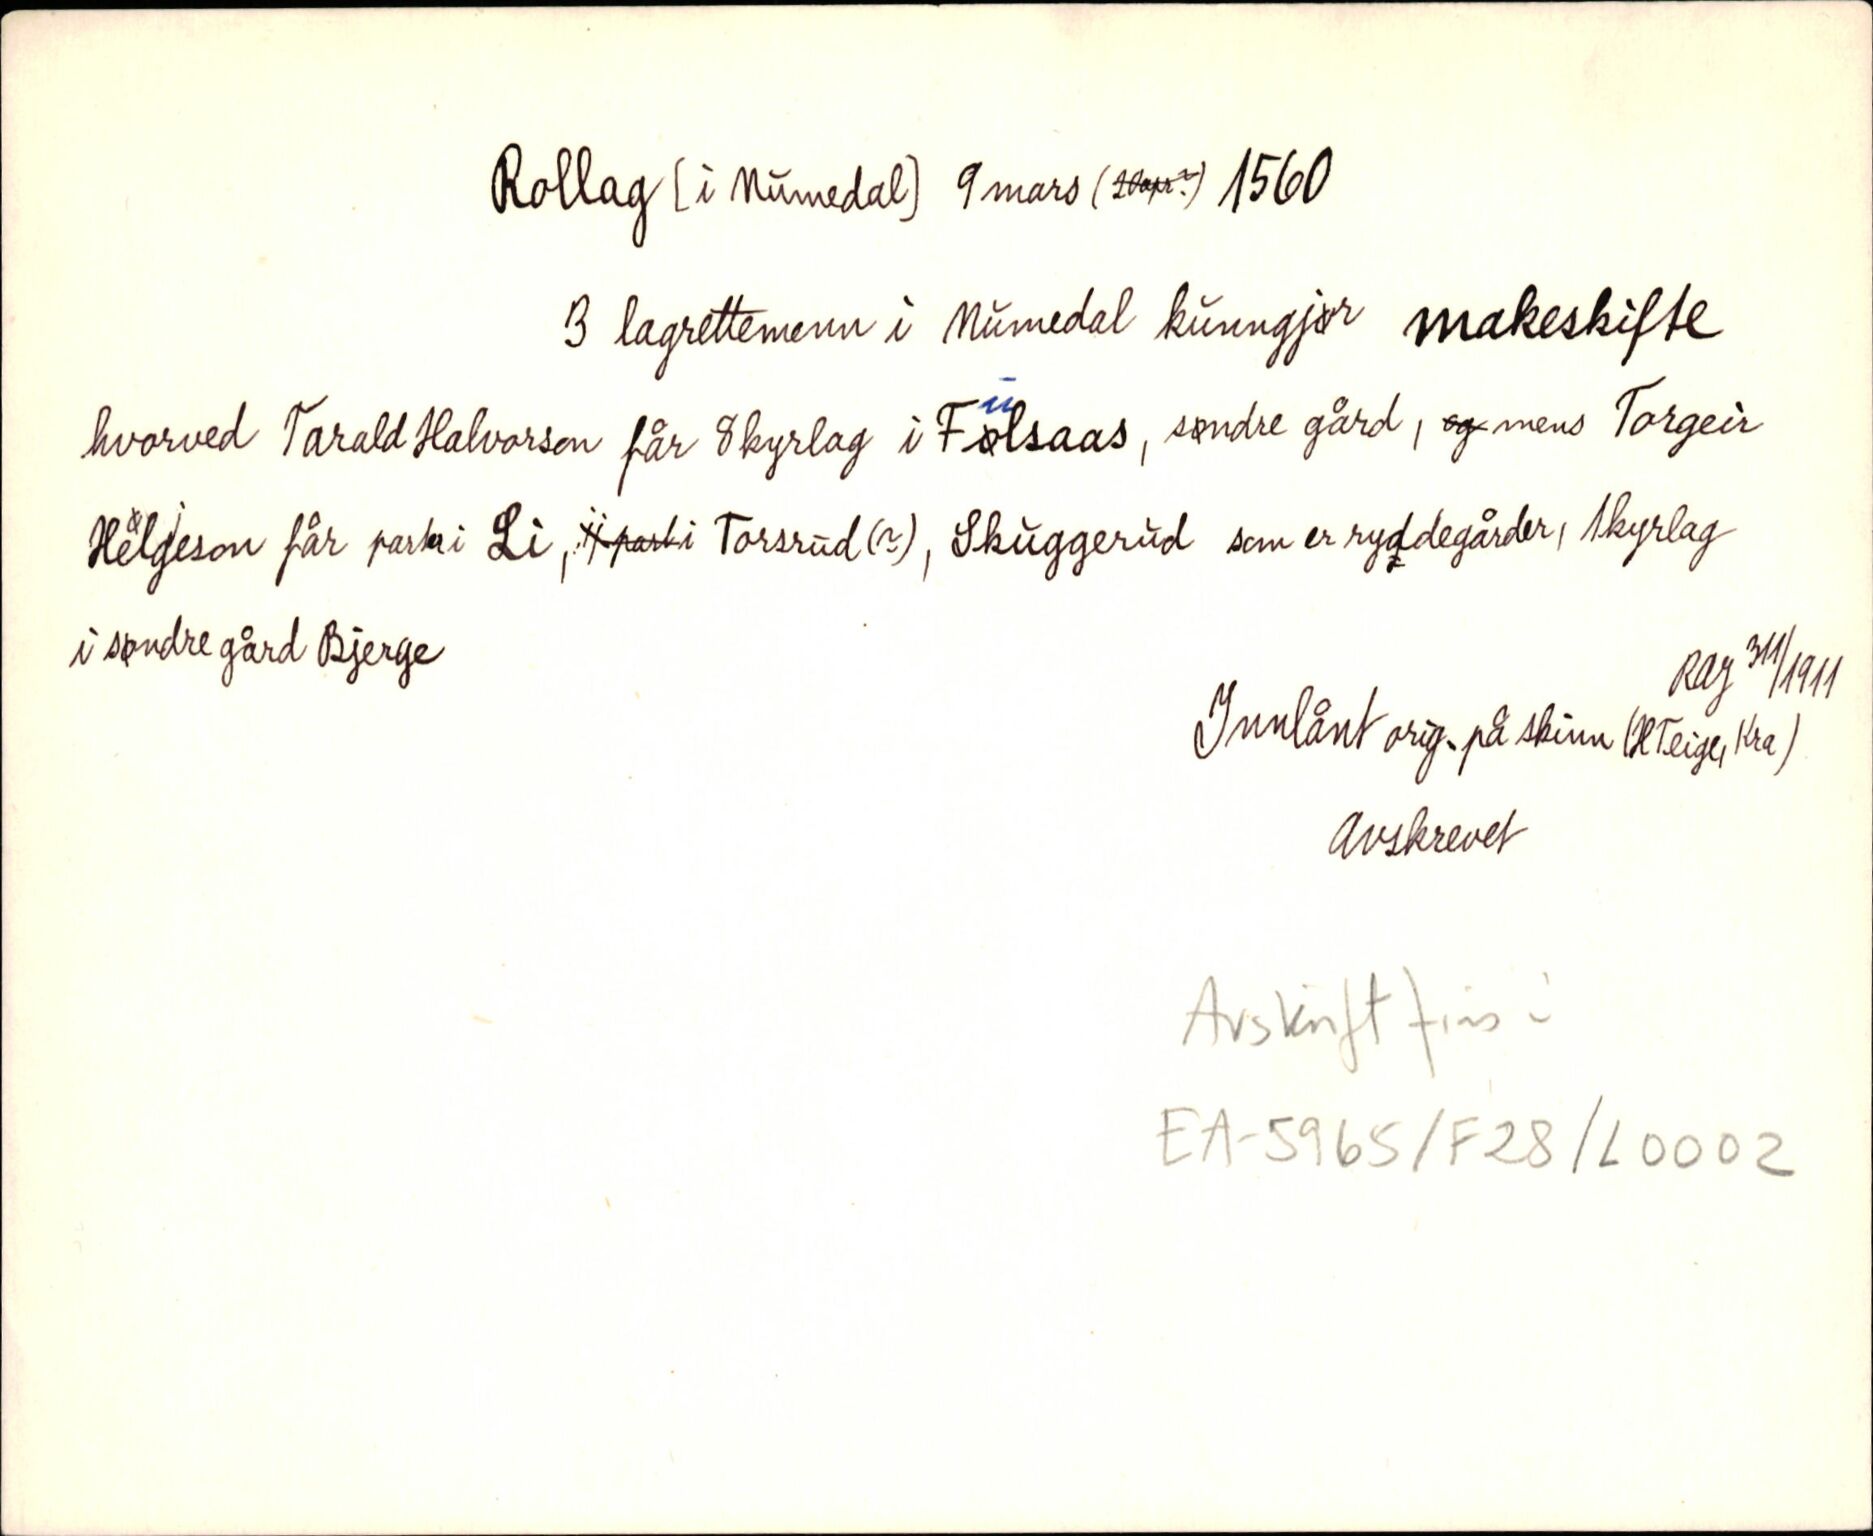 Rollag [i Numedal] 9 mars (20 apr?) 1560
3 lagrettemenn i Numedal kunngjør makeskifte
hvorved Tarald Halvorson får 8 kyrlag i Fulsaas, søndre gård, og mens Torgeir
Helgeson får parter i Li, i part i Torsrud (?), Skuggerud som er ryddegårder, 1 kyrlag
i søndre gård Bjerge
RAJ 311/1911
Innlånt orig. på skinn (H Teige, Kra)
Avskrevet
Avskrift fins i
EA-5965/F28/L0002